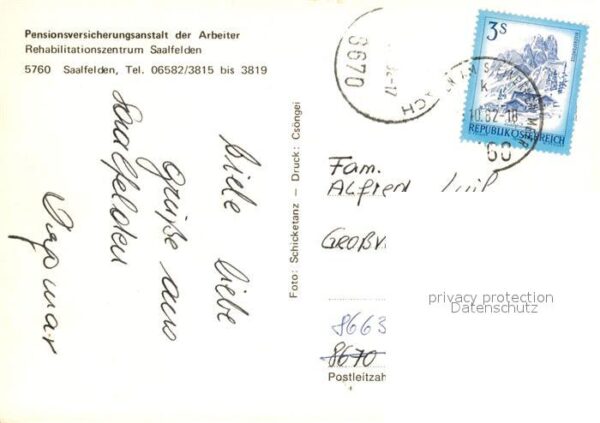 Pensionsversicherungsanstalt der Arbeiter
Rehabilitationszentrum Saalfelden
5760 Saalfelden, Tel. 06582/3815 bis 3819
Viele liebe
Grüße aus
Saalfelden
Dagmar
Foto: Schicketanz – Druck: Csöngei
8670
3S
REPUBLIK ÖSTERREICH
10.82-18
Fam.
Alfred
GROßV
privacy protection
Datenschutz
8663
8670
Postleitzah